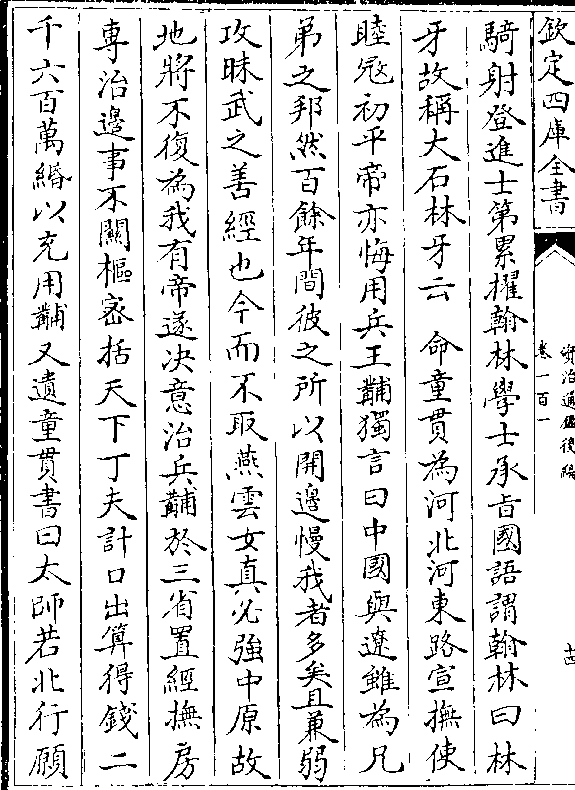 欽定四庫全書
資治通鑑後編
卷一百一
十四
騎射登進士第累擢翰林學士承旨國語謂翰林曰林
牙故稱大石林牙云　命童貫為河北河東路宣撫使
睦冦初平帝亦悔用兵王黼獨言曰中國與遼雖為兄
弟之邦然百餘年間彼之所以開邊慢我者多矣且兼弱
攻昧武之善經也今而不取燕雲女真必強中原故
地將不復為我有帝遂決意治兵黼於三省置經撫房
専治邊事不關樞宻括天下丁夫計口出算得錢二
千六百萬緡以充用黼又遺童貫書曰太師若北行願